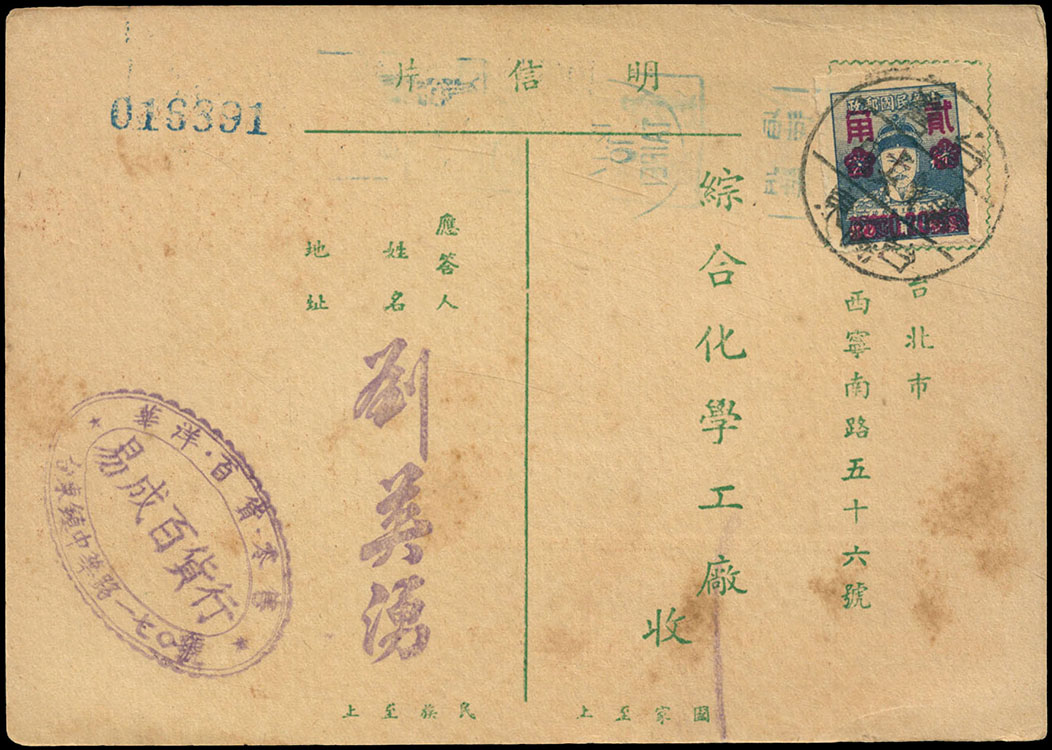 明信片
016391
中華民國郵政
貳角
台北市
西寧南路五十六號
綜合化學工廠
收
應答人
姓名
地址
劉英湧
華洋·百貨·零售
易成百貨行
台東鎮中華路一七〇號
國家至上
民族至上